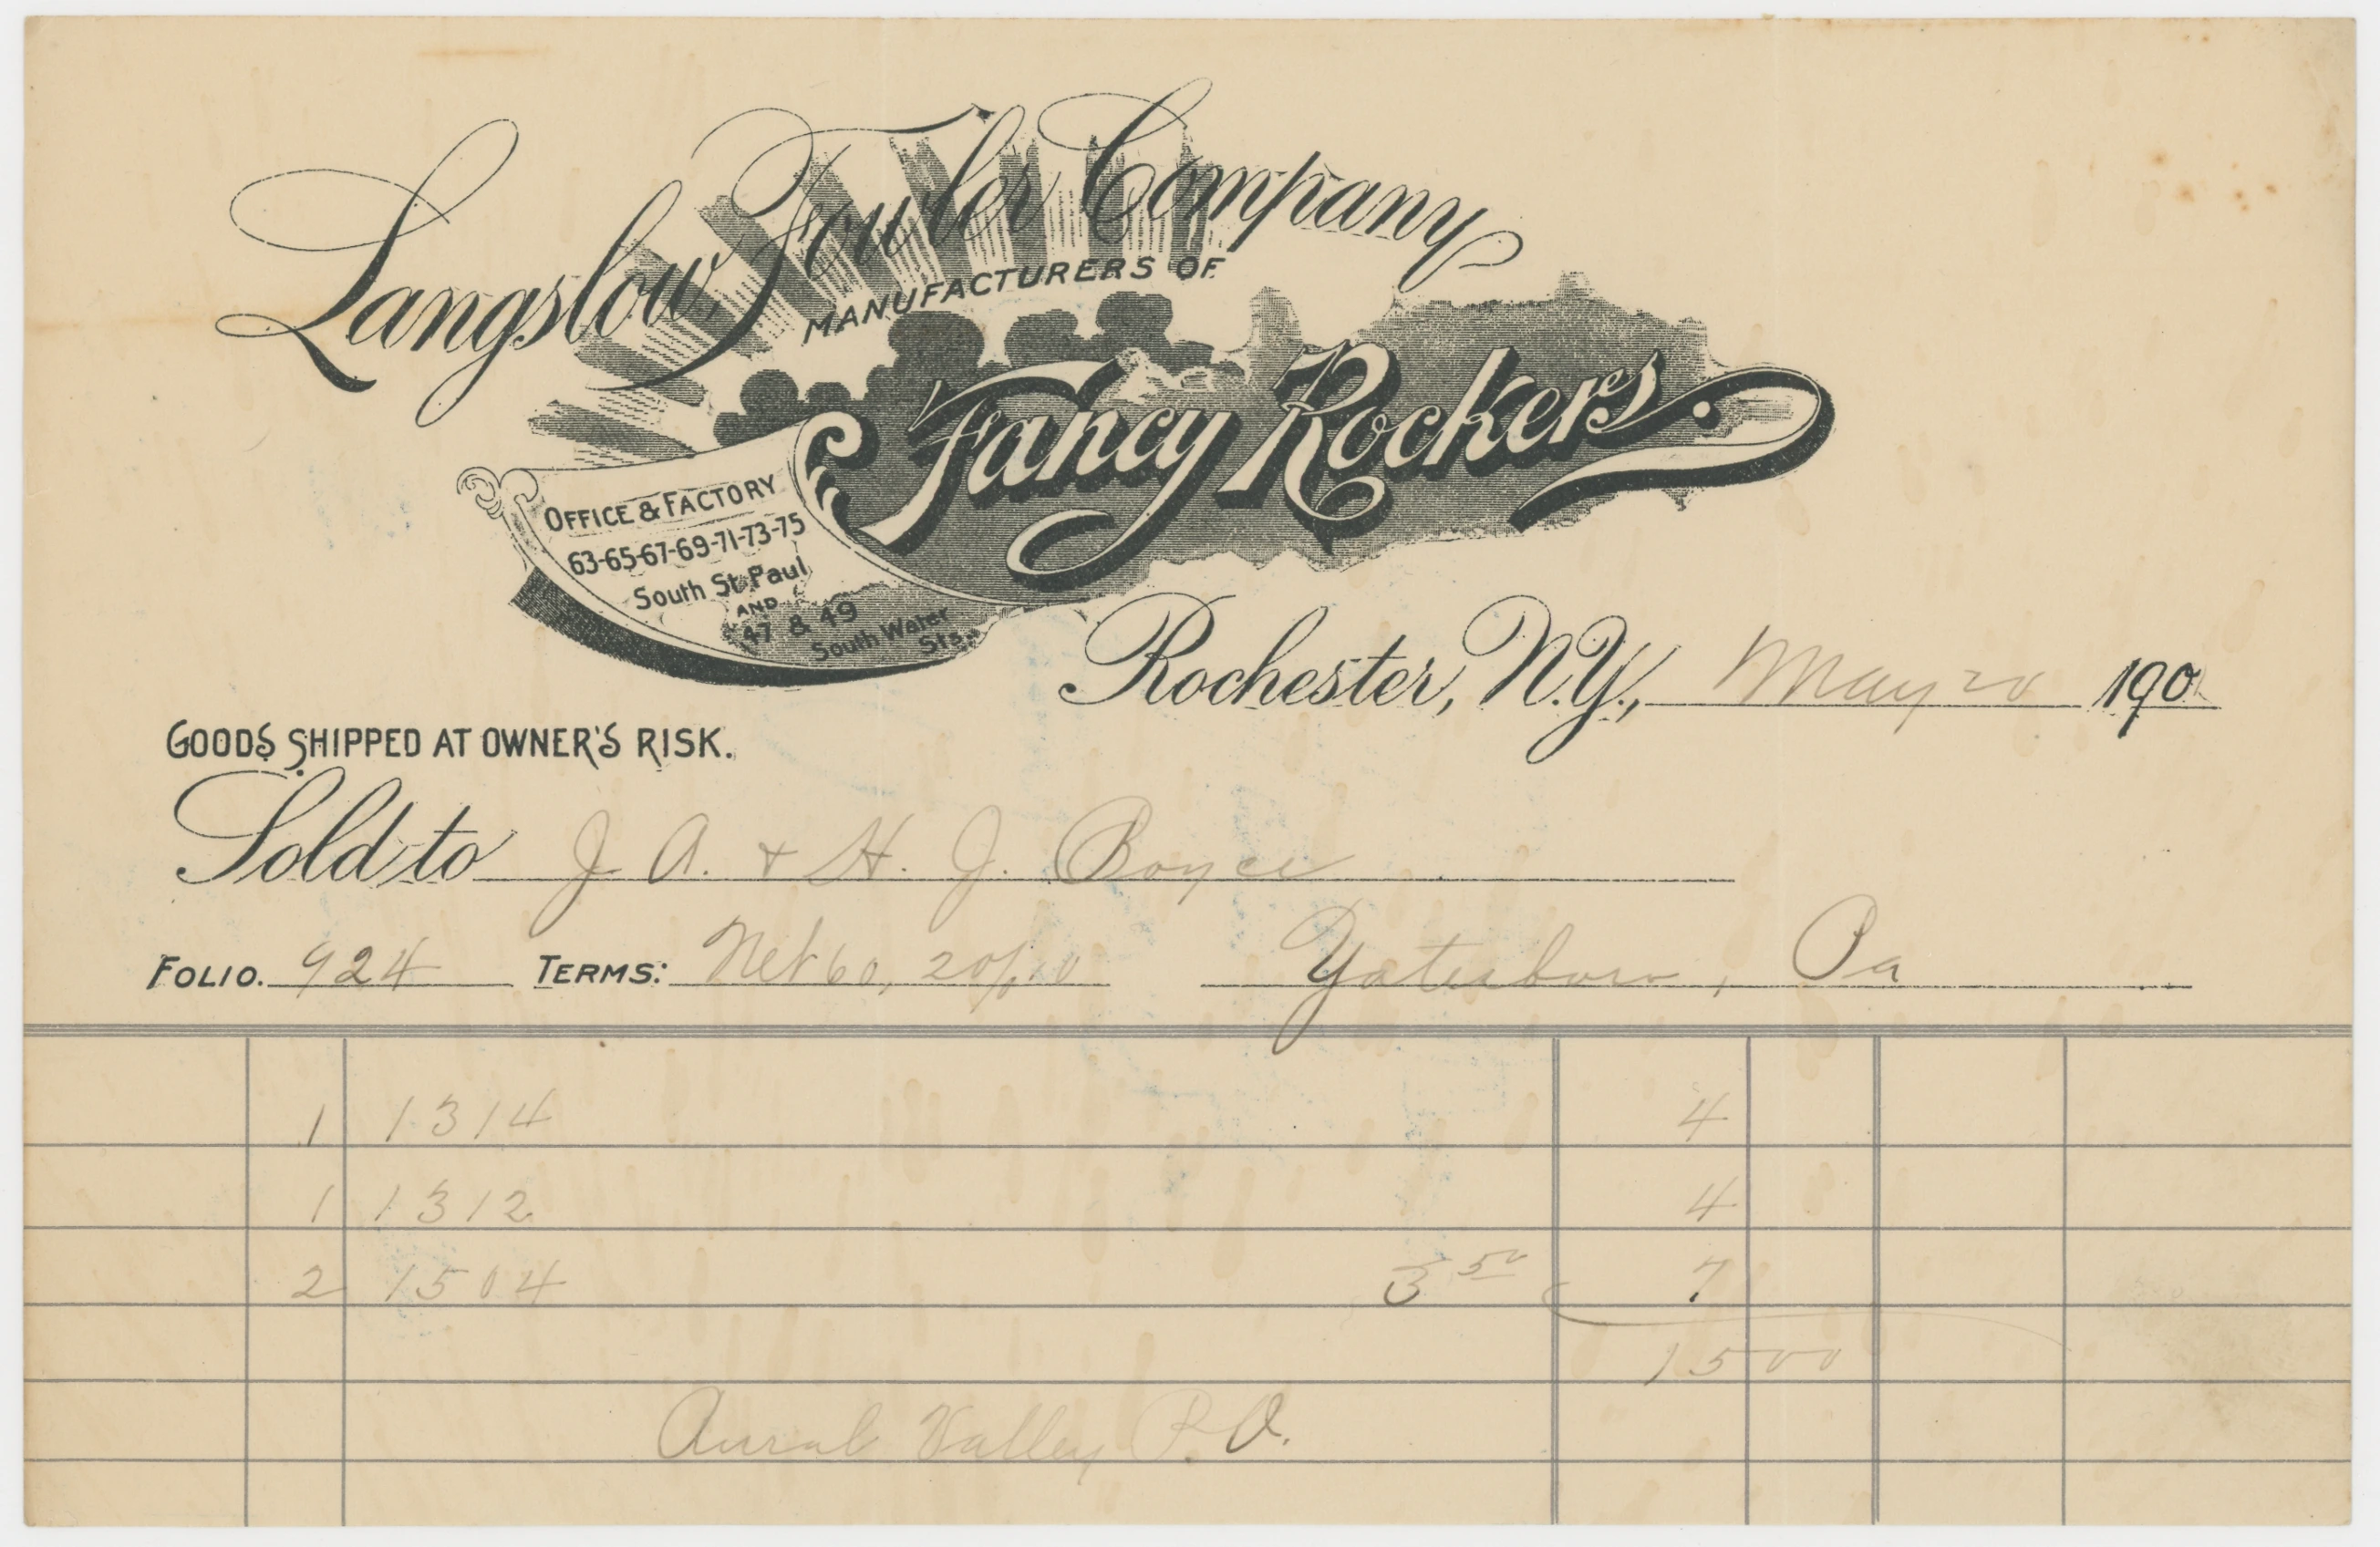 Langslow, Fowler Company
MANUFACTURERS OF
Fancy Rockers.
OFFICE & FACTORY
63-65-67-69-71-73-75
South St. Paul
AND
47 & 49
South Water
Sts.
Rochester, N.Y., May 20 190
GOODS SHIPPED AT OWNER'S RISK.
Sold to J. A. & H. J. Boyce
FOLIO. 924 TERMS: Net 60, 2 0/0 10 Yatesboro, Pa
1 1314 4
1 1312 4
2 1504 3 50 7
15 00
Valley P.O.